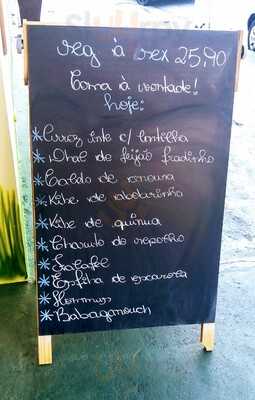 seg à sex 25,90
Coma à vontade!
hoje:
* Arroz inte c/ lentilha
* de feijão fradinho
* Caldo de cenoura
* Kibe de abobrinha
* Kibe de quinua
* Charuto de repolho
* Falafel
* Esfiha de escarola
* Hommus
* Babaganouch